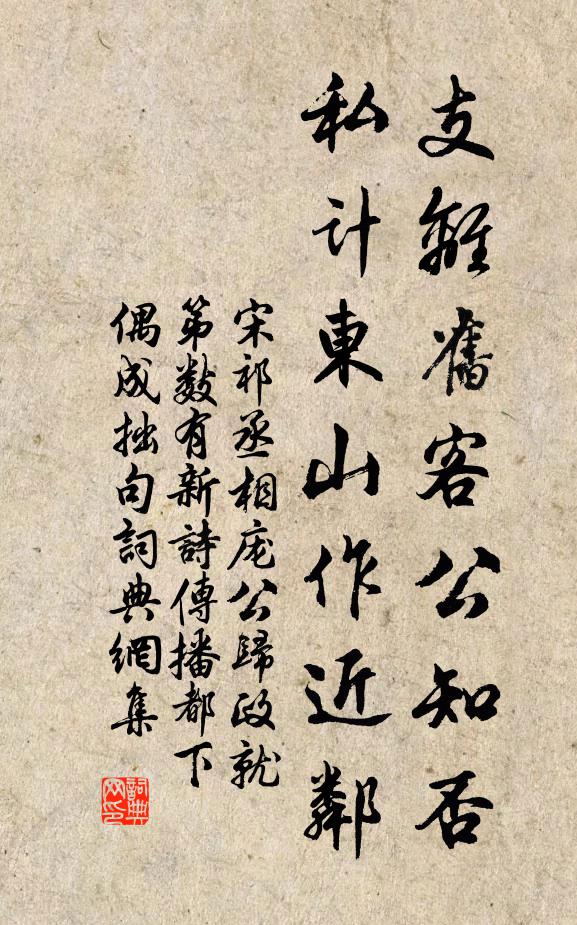 支離舊客公知否
私計東山作近鄰
宋祁丞相庞公歸政就
第數有新詩傳播都下
偶成拙句詞典網集
詞典
网印